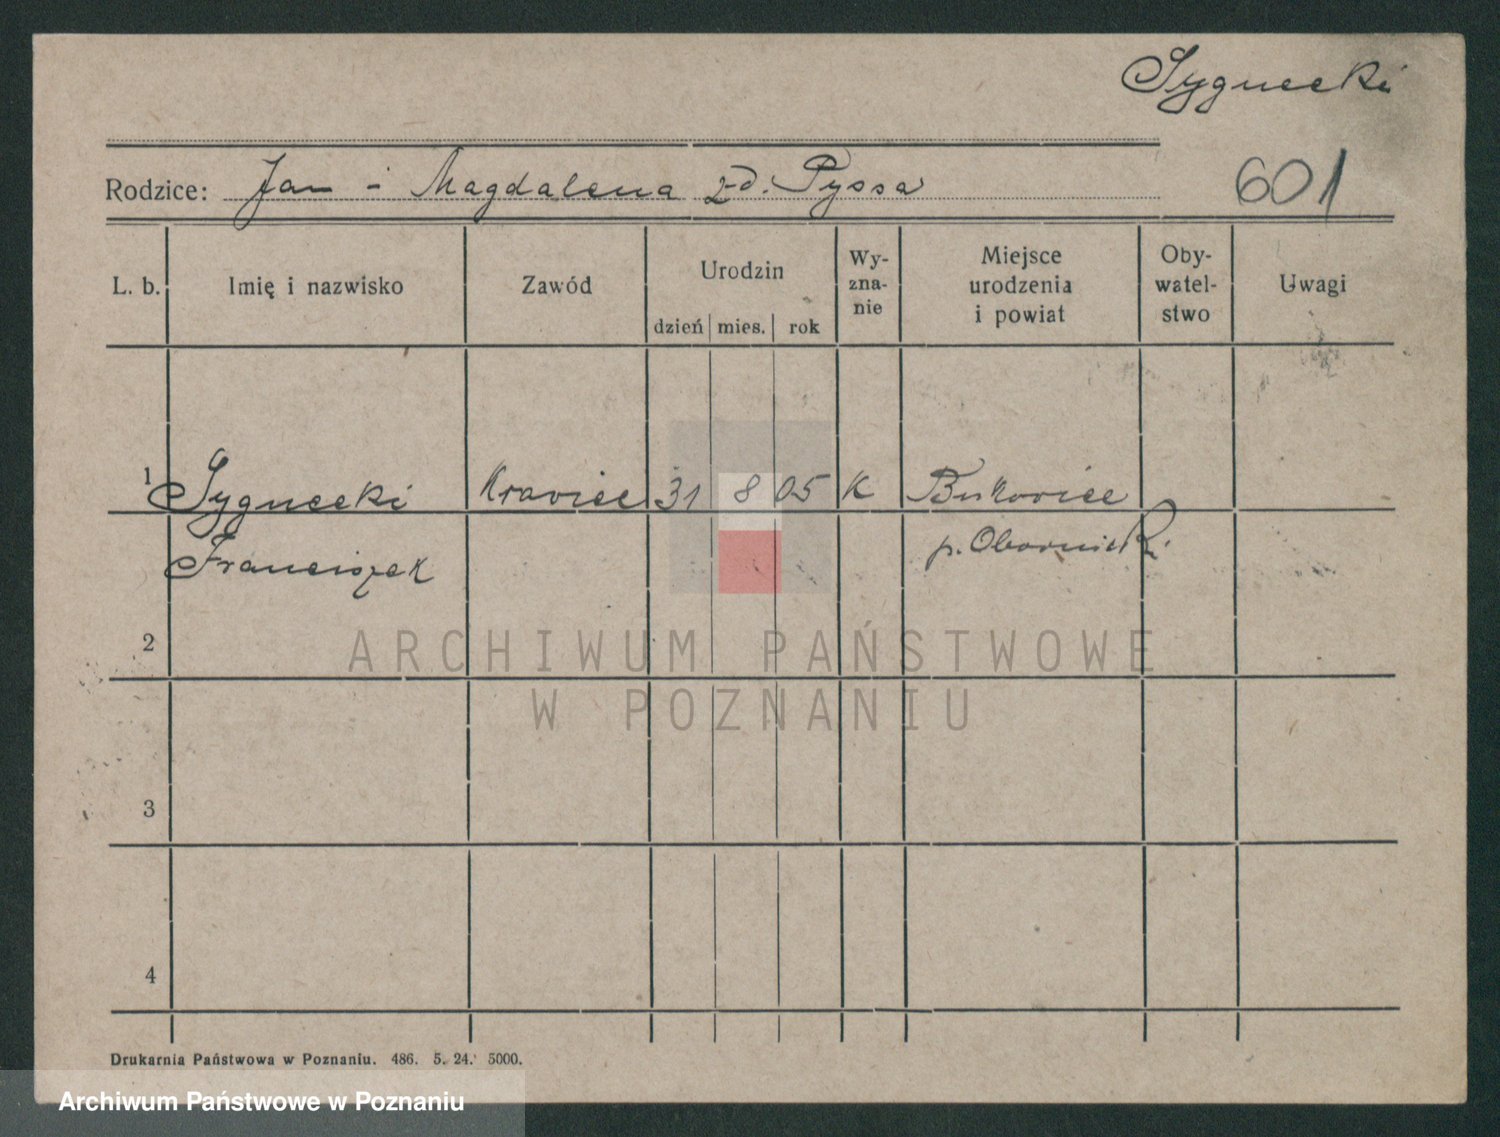 Sygnecki
Rodzice: Jan - Magdalena zd. Pyssa
601
L. b. Imię i nazwisko Zawód Urodzin dzień mies. rok Wy-zna-nie Miejsce urodzenia i powiat Oby-watel-stwo Uwagi
1 Sygnecki Krawiec 31 8 05 K Bukowiec
Franciszek p. Obornicki
2
3
4
ARCHIWUM PAŃSTWOWE
W POZNANIU
Drukarnia Państwowa w Poznaniu. 486. 5. 24. 5000.
Archiwum Państwowe w Poznaniu